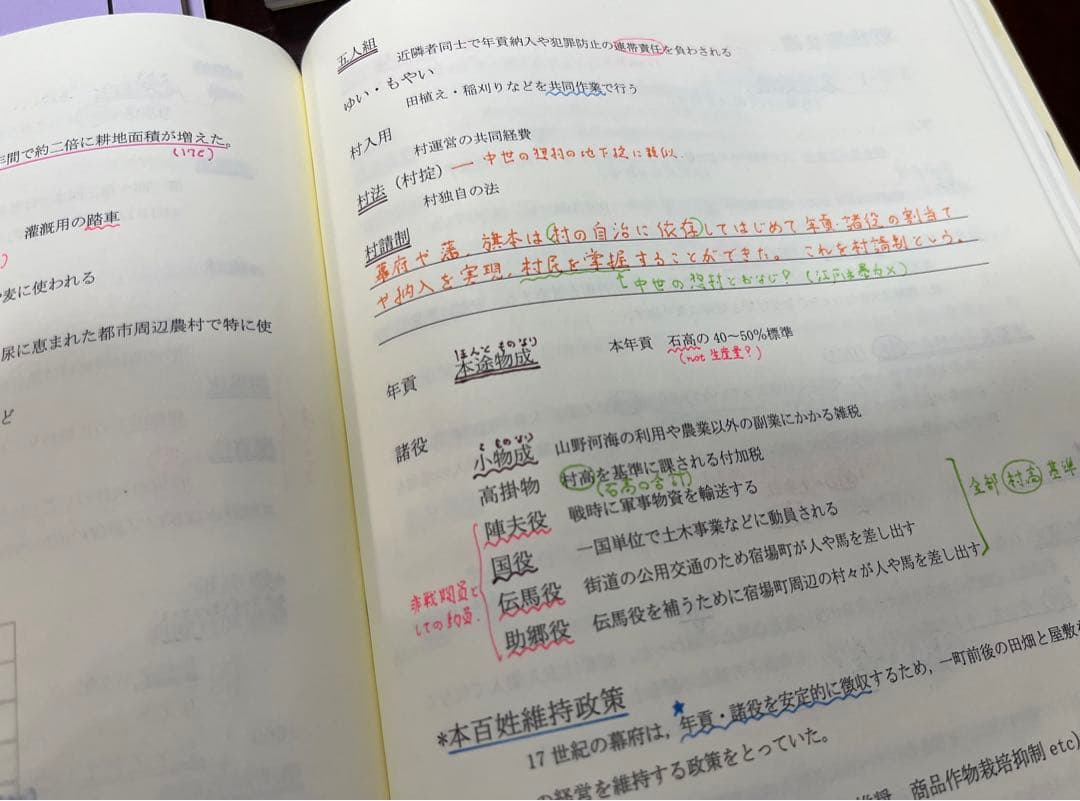 年間で約二倍に耕地面積が増えた。
(17C)
灌漑用の踏車
麦に使われる
尿に恵まれた都市周辺農村で特に使
ど
五人組 近隣者同士で年貢納入や犯罪防止の連帯責任を負わされる
ゆい・もやい
田植え・稲刈りなどを共同作業で行う
村入用 村運営の共同経費
村法（村掟） ― 中世の惣村の地下掟に類似
村独自の法
村請制
幕府や藩、旗本は村の自治に依存してはじめて年貢・諸役の割当て
や納入を実現、村民を掌握することができた。これを村請制という。
↑中世の惣村とおなじ?
ほんと ものなり
年貢 本途物成 本年貢 石高の 40～50%標準
(not 生産量?)
こ ものなり
諸役 小物成 山野河海の利用や農業以外の副業にかかる雑税
高掛物 村高を基準に課される付加税
(石高の合計)
陣夫役 戦時に軍事物資を輸送する
国役 一国単位で土木事業などに動員される
伝馬役 街道の公用交通のため宿場町が人や馬を差し出す
助郷役 伝馬役を補うために宿場町周辺の村々が人や馬を差し出す
非戦闘員と
しての動員.
全部 村高 基準
*本百姓維持政策
17 世紀の幕府は，年貢・諸役を安定的に徴収するため，一町前後の田畑と屋敷
の経営を維持する政策をとっていた。
商品作物栽培抑制 etc)